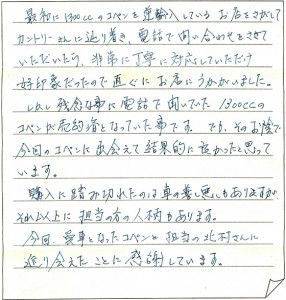 最初に1300ccのコペンを逆輸入しているお店をさがして
カントリーさんに辿り着き、電話で問い合わせをさせて
いただいたら、非常に丁寧に対応していただけ
好印象だったので直ぐにお店にうかがいました。
しかし残念な事に電話で聞いていた1300ccの
コペンが売約済となっていた事です。でも、そのお陰で
今回のコペンに出会えて結果的に良かったと思って
います。
購入に踏み切れたのは車の善し悪しもありますが
それ以上に担当の方の人柄もあります。
今回、愛車となったコペンと担当の北村さんに
巡り会えたことに感謝しています。